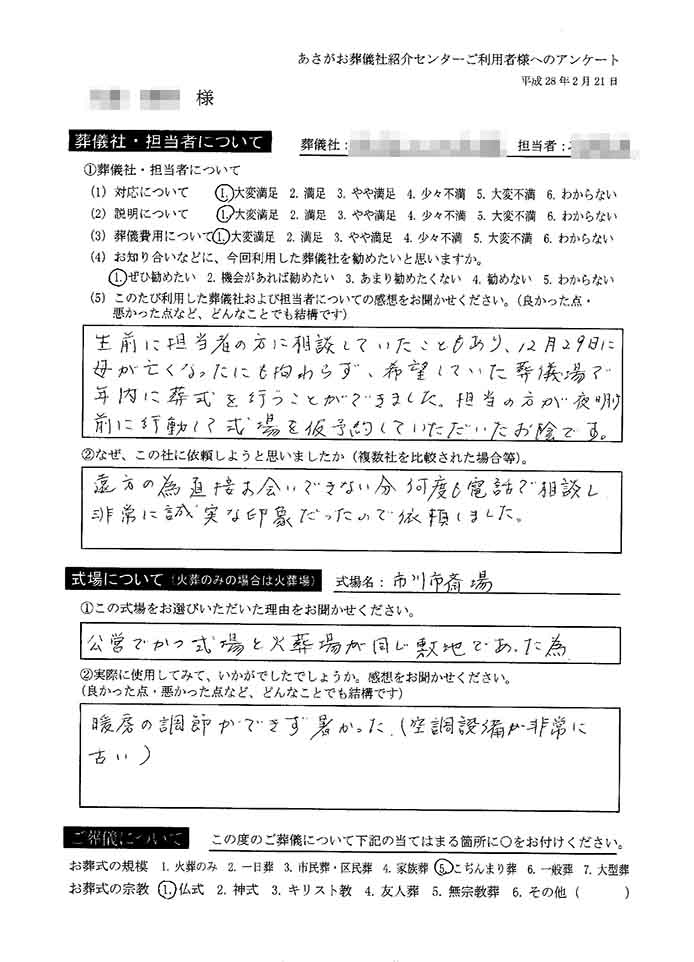 あさがお葬儀社紹介センターご利用者様へのアンケート
平成28年2月21日
様
葬儀社・担当者について 葬儀社: 担当者:
①葬儀社・担当者について
(1) 対応について 1. 大変満足 2. 満足 3. やや満足 4. 少々不満 5. 大変不満 6. わからない
(2) 説明について 1. 大変満足 2. 満足 3. やや満足 4. 少々不満 5. 大変不満 6. わからない
(3) 葬儀費用について 1. 大変満足 2. 満足 3. やや満足 4. 少々不満 5. 大変不満 6. わからない
(4) お知り合いなどに、今回利用した葬儀社を勧めたいと思いますか。
1. ぜひ勧めたい 2. 機会があれば勧めたい 3. あまり勧めたくない 4. 勧めない 5. わからない
(5) このたび利用した葬儀社および担当者についての感想をお聞かせください。(良かった点・
悪かった点など、どんなことでも結構です)
生前に担当者の方に相談していたこともあり、12月29日に
母が亡くなったにも拘わらず、希望していた葬儀場で
年内に葬式を行うことができました。担当の方が夜明け
前に行動して式場を仮予約していただいたお陰です。
②なぜ、この社に依頼しようと思いましたか(複数社を比較された場合等)。
遠方の為直接お会いできない分何度も電話で相談し
非常に誠実な印象だったので依頼しました。
式場について(火葬のみの場合は火葬場) 式場名:市川市斎場
①この式場をお選びいただいた理由をお聞かせください。
公営でかつ式場と火葬場が同じ敷地であった為
②実際に使用してみて、いかがでしたでしょうか。感想をお聞かせください。
(良かった点・悪かった点など、どんなことでも結構です)
暖房の調節ができず暑かった.(空調設備が非常に
古い)
ご葬儀について この度のご葬儀について下記の当てはまる箇所に○をお付けください。
お葬式の規模 1. 火葬のみ 2. 一日葬 3. 市民葬・区民葬 4. 家族葬 5. こぢんまり葬 6. 一般葬 7. 大型葬
お葬式の宗教 1. 仏式 2. 神式 3. キリスト教 4. 友人葬 5. 無宗教葬 6. その他 ( )